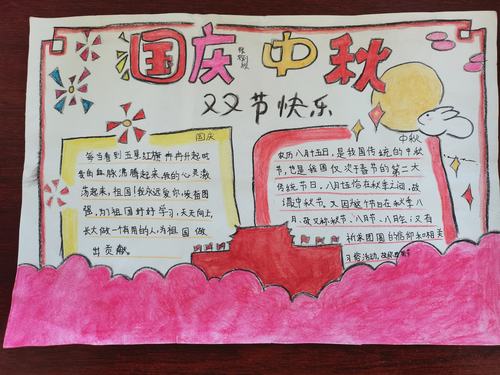 国庆中秋
双双节快乐
国庆
每当看到五星红旗冉冉升起时
我的血脉沸腾起来,我的心灵激
荡起来,祖国!我永远爱你,发奋图
强,为祖国好好学习,天天向上,
长大做一个有用的人,为祖国做
出贡献。
中秋
农历八月十五日,是我国传统的中秋
节,也是我国仅次于春节的第二大
传统节日,八月十五恰在秋季之间,故
谓中秋节。又因这个节日在秋季八
月,故又称秋节、八月节、八月会;又有
祈求团圆的信仰和相关
习俗活动,